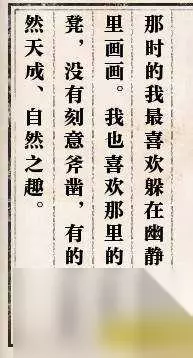 那时的我最喜欢躲在幽静
里画画。我也喜欢那里的
凳，没有刻意斧凿，有的
然天成、自然之趣。